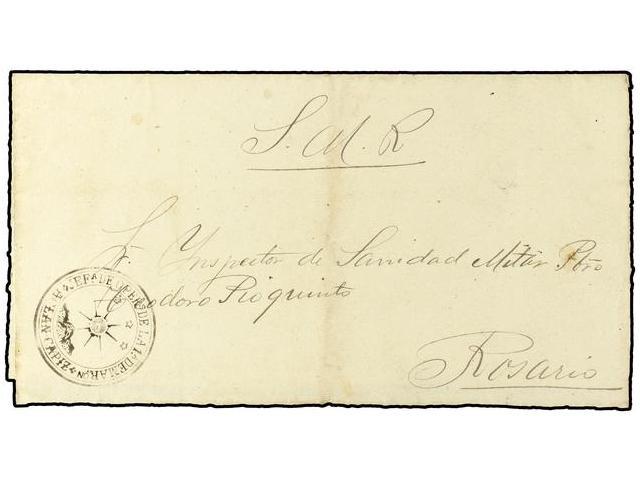 S. M. R
Sr. Inspector de Sanidad Mitar Pbro
Teodoro Pioquinto
Rosario